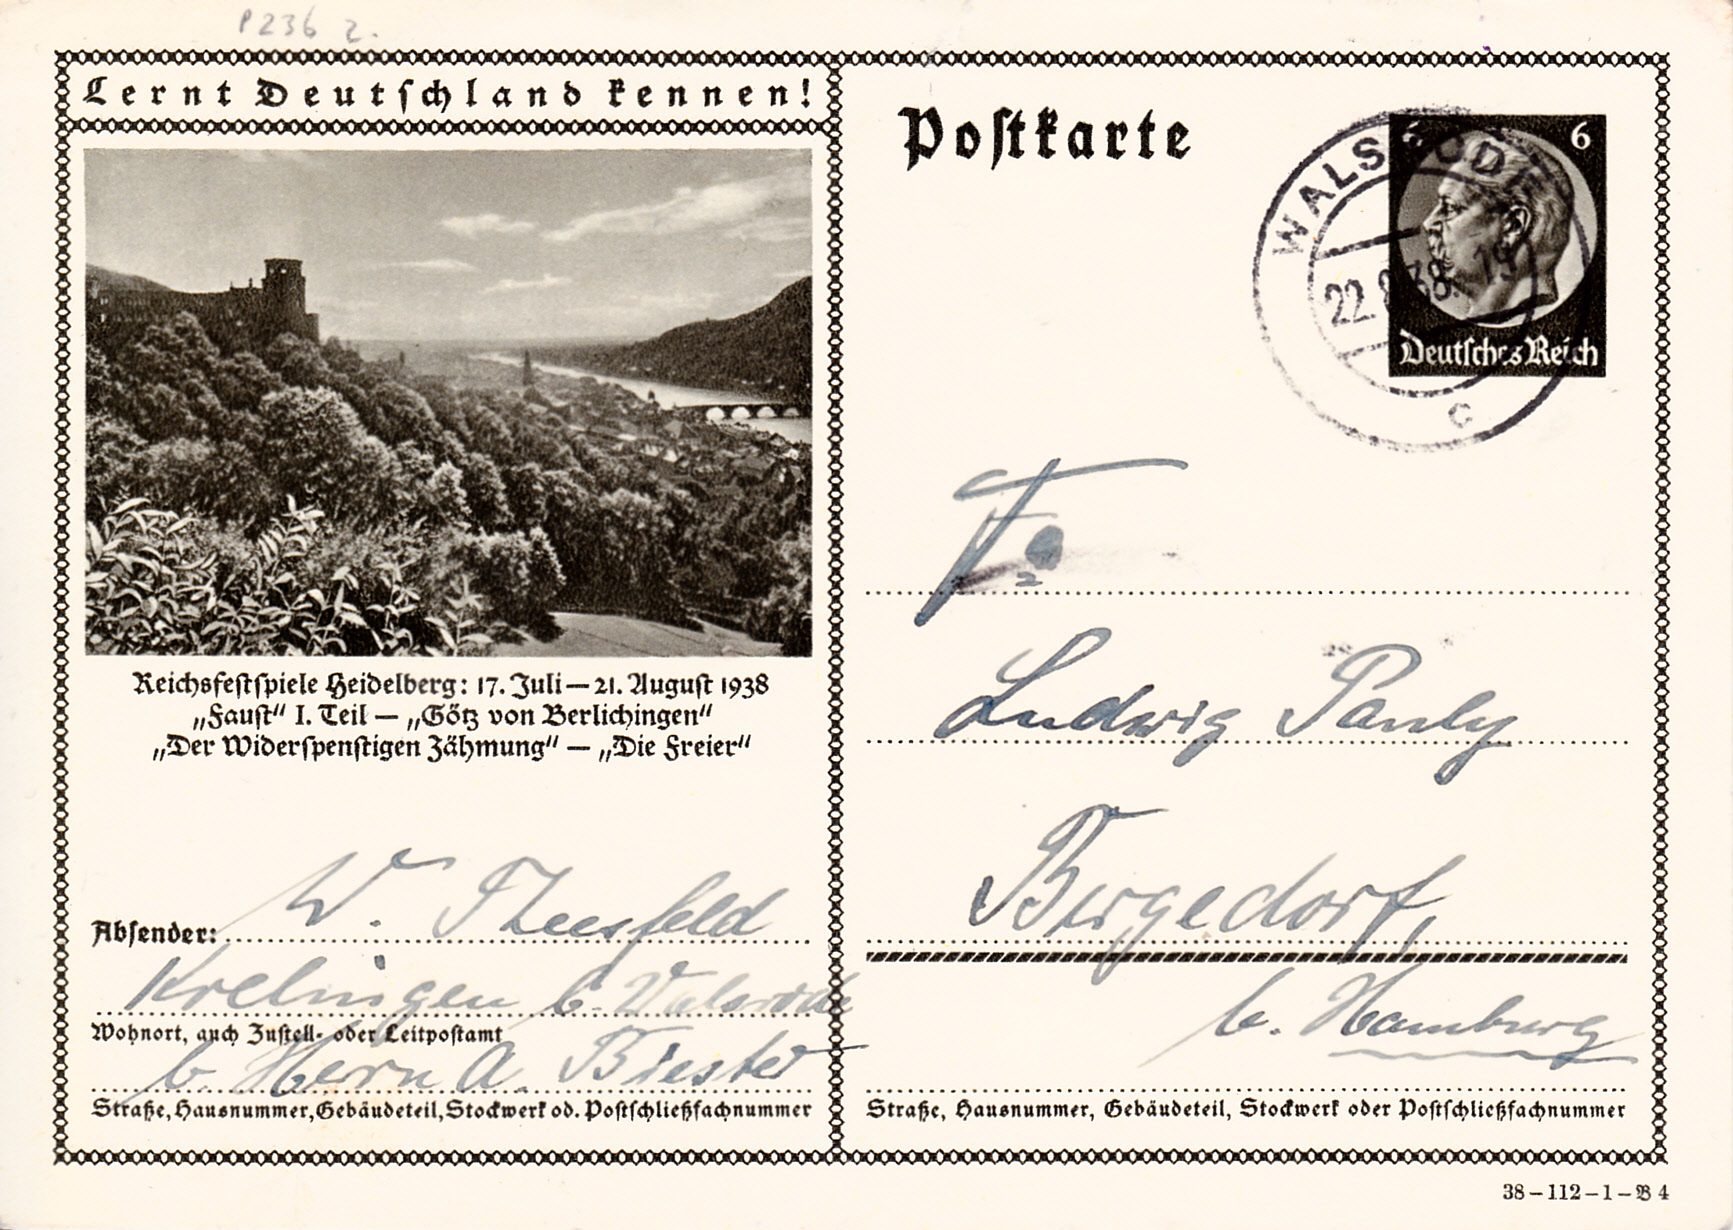 P236 2.
Lernt Deutschland kennen!
Reichsfestspiele Heidelberg: 17. Juli — 21. August 1938
„Faust“ I. Teil — „Götz von Berlichingen“
„Der Widerspenstigen Zähmung“ — „Die Freier“
Absender: W. Theesfeld
Krelingen b. Walsrode
Wohnort, auch Zustell- oder Leitpostamt
b. Herrn A. Biester
Straße, Hausnummer, Gebäudeteil, Stockwerk od. Postschließfachnummer
Postkarte
6 6
Deutsches Reich
WALSRODE
22.8.38. 19
c
Fa
Ludwig Pauly
Bergedorf,
b. Hamburg
Straße, Hausnummer, Gebäudeteil, Stockwerk oder Postschließfachnummer
38–112–1–B 4